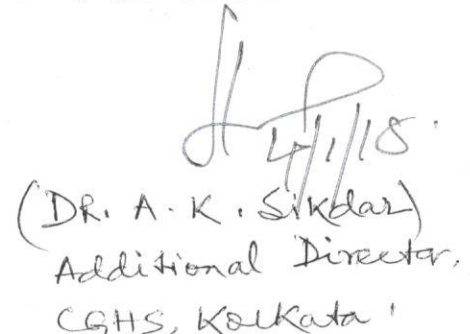 4/1/18.
(DR. A. K. Sikdar)
Additional Director,
CGHS, Kolkata